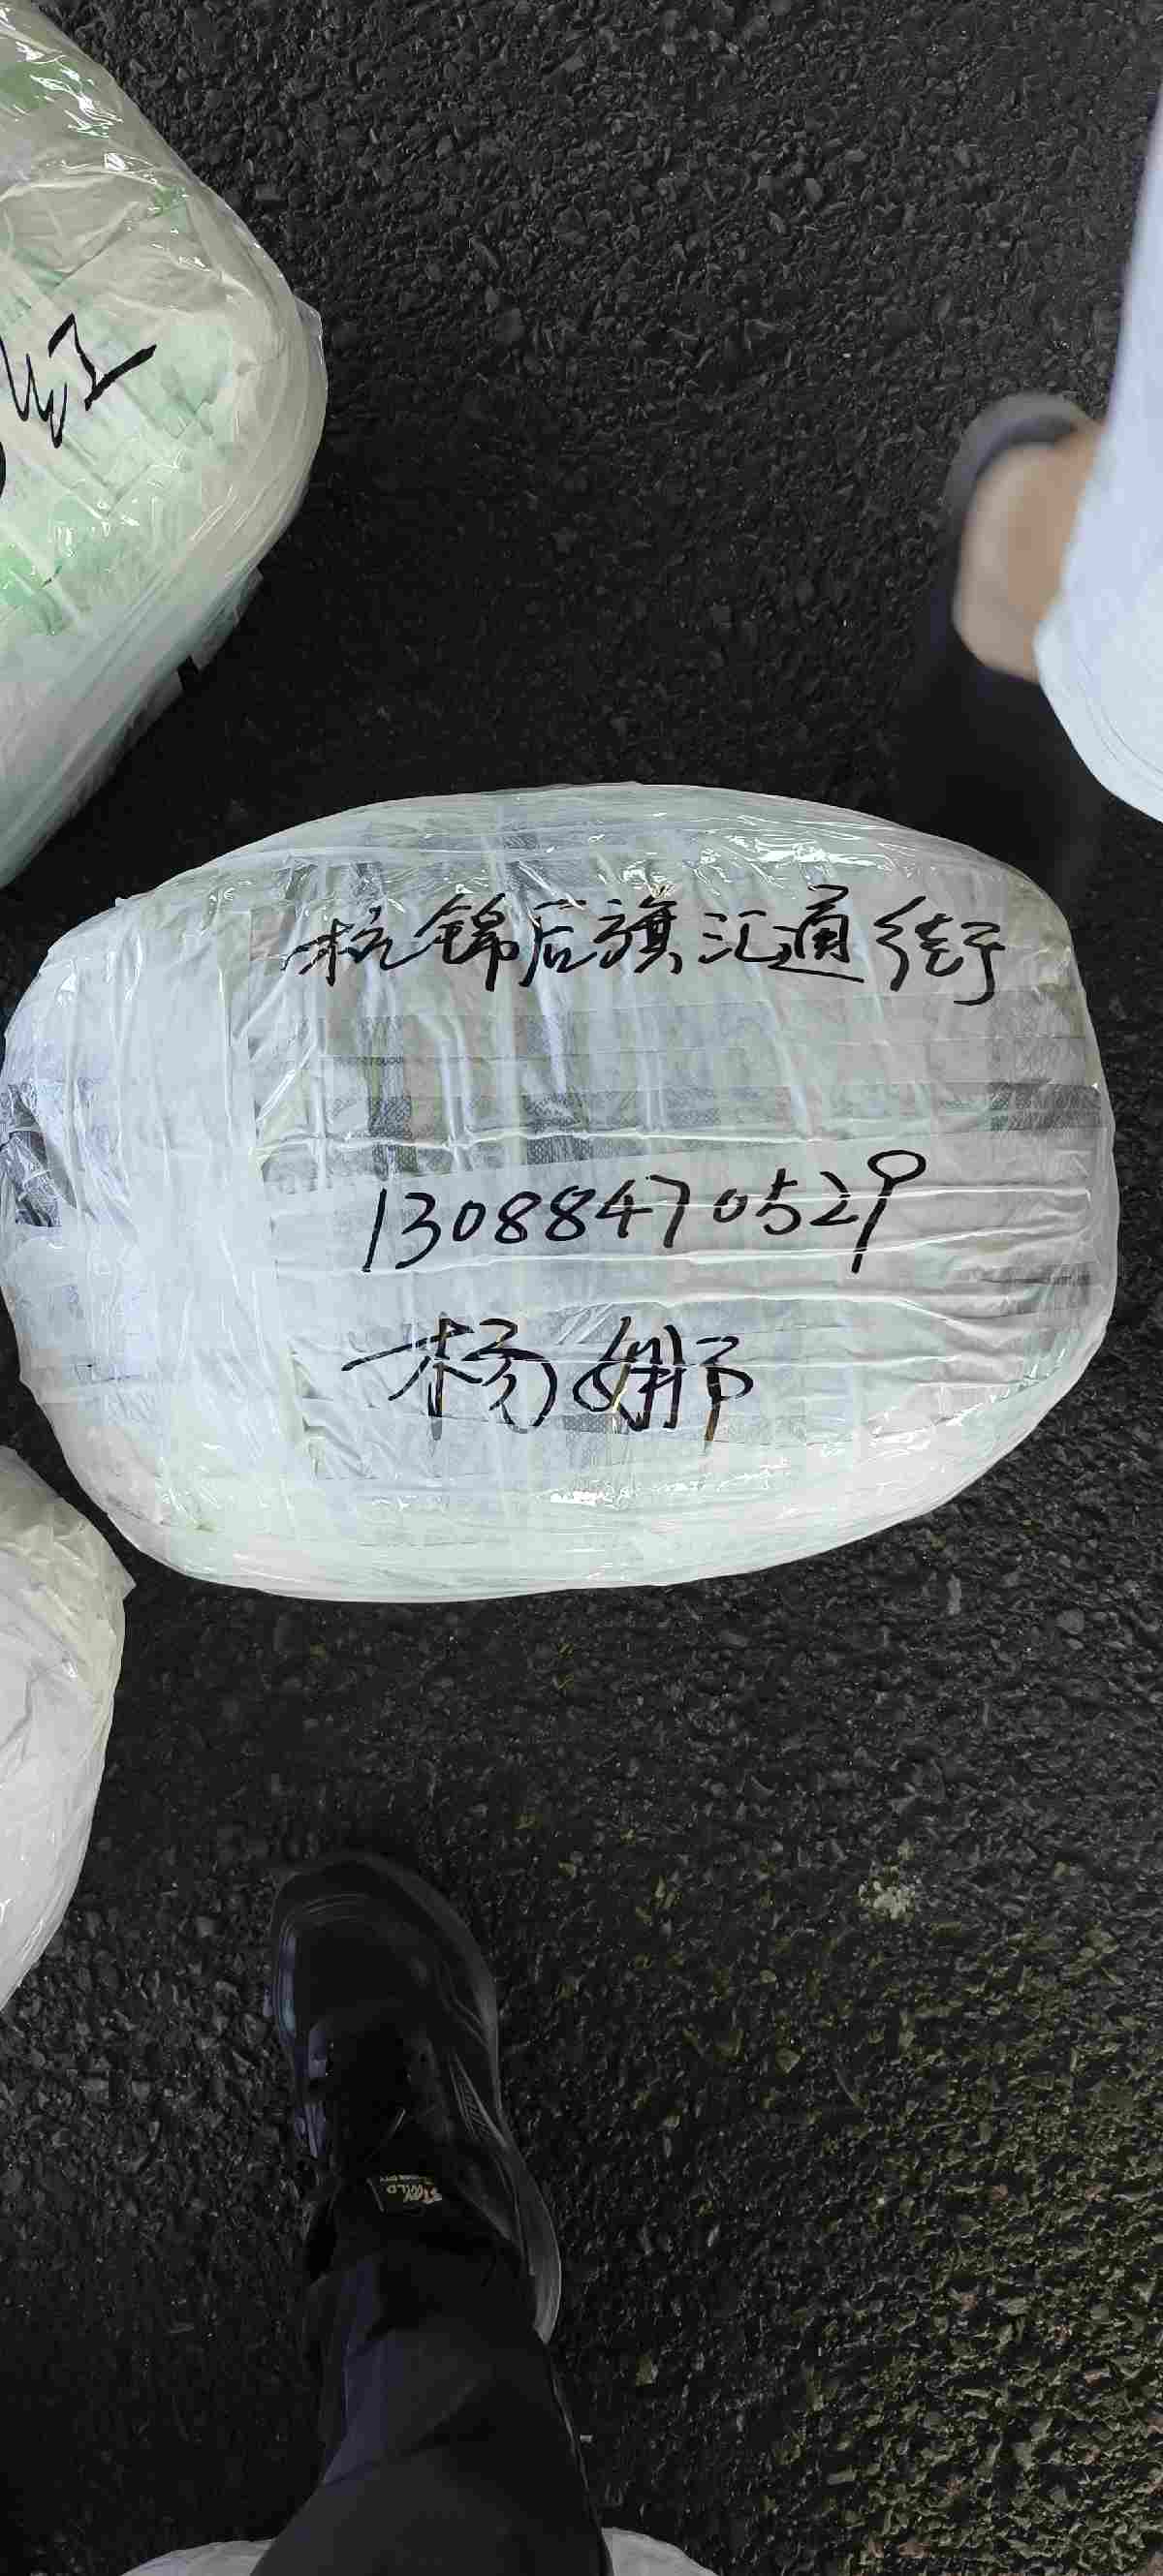 红
杭锦后旗汇通街
13088470529
杨娜